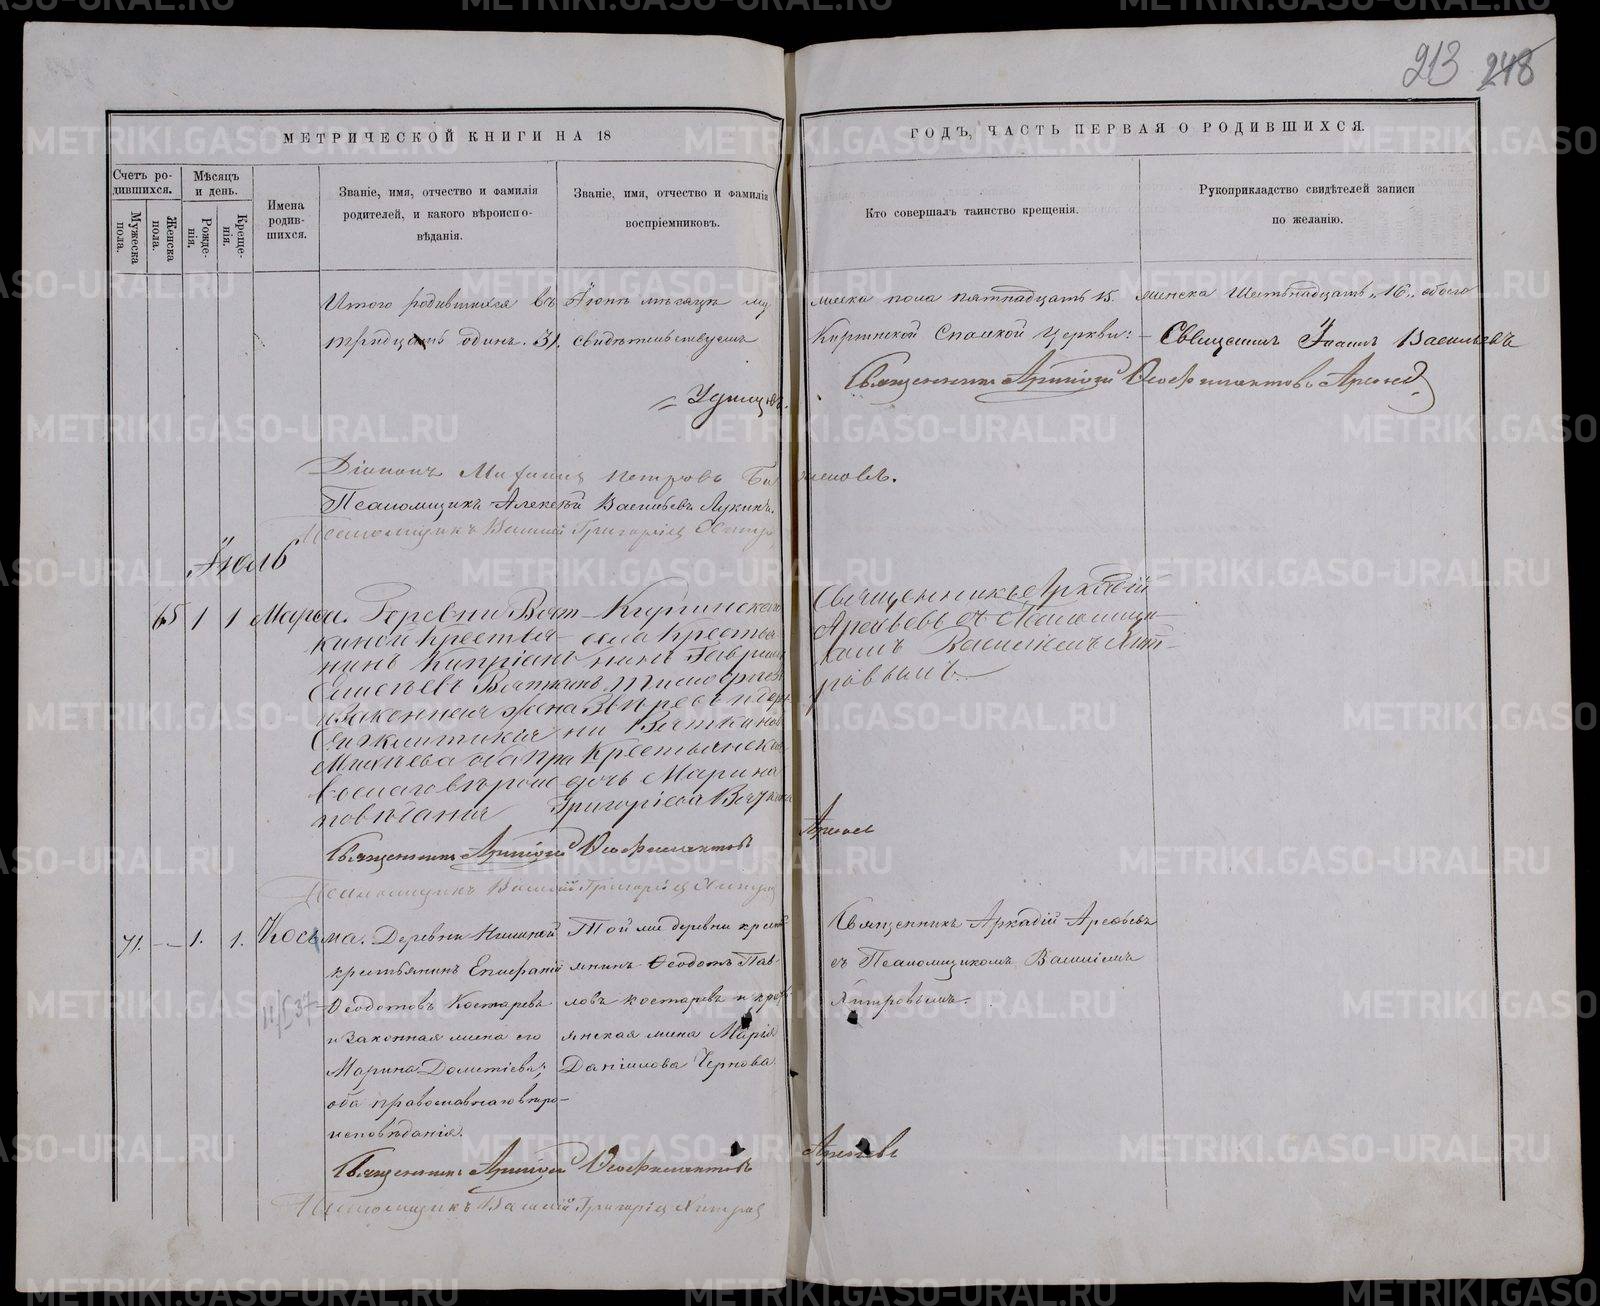 213 248
МЕТРИЧЕСКОЙ КНИГИ НА 18
ГОДЪ, ЧАСТЬ ПЕРВАЯ О РОДИВШИХСЯ.
Счетъ ро-
дившихся.
Мужеска
пола.
Женска
пола.
Мѣсяцъ
и день.
Рожде-
нія.
Креще-
нія.
Имена
родив-
шихся.
Званіе, имя, отчество и фамилія
родителей, и какого вѣроиспо-
вѣданія.
Званіе, имя, отчество и фамилія
воспріемниковъ.
Кто совершалъ таинство крещенія.
Рукоприкладство свидѣтелей записи
по желанію.
Итого родившихся въ Іюнѣ мѣсяцѣ му
жеска пола пятнадцать 15. женска Шестьнадцать „16„ обоего
тридцать одинъ. 31. свидѣтельствуемъ
Киргинской Спасской Церкви: Священникъ Іоаннъ Васильевъ
Удинцевъ.
Священникъ Аркадій Ѳеофилактовъ Арефьев
Діаконъ Михаилъ Петровъ Ба женовъ.
Псаломщикъ Алексѣй Васильевъ Лукинъ.
Псаломщикъ Василій Григорьевъ Хитров
Іюль
65 1 1 Марѳа.
Деревни Вят
киной Крестья-
нинъ Кипріанъ
Вяткинъ
и Законная жена
Михѣева оба пра
вославнаго вѣроис
повѣданія
Киргинскаго
села Крестья
нинъ Гавріилъ
и дере
ни Вяткиной
Крестьянская
дочь Марина
Григоріева Вяткина
Священникъ Аркадій
Арефьевъ съ Псаломщи-
комъ Василіемъ Хит-
ровымъ.
Священникъ Аркадій Ѳеофилактовъ Арефьев
Псаломщикъ Василій Григорьевъ Хитров
71. -- 1. 1. Косьма.
Деревни Нижной
крестьянинъ Епифаній
Ѳеодотовъ Костаревъ
и Законная жена его
Марина Дометіева,
оба православнаго вѣро-
исповѣданія.
Той же деревни крест
янинъ Ѳеодотъ Пав-
ловъ Костаревъ и крест
янская жена Марія
Даніилова Чернова.
Священникъ Аркадій Арефьевъ
съ Псаломщикомъ Василіемъ
Хитровымъ.
Священникъ Аркадій Ѳеофилактовъ Арефьевъ
Псаломщикъ Василій Григорьевъ Хитров
METRIKI.GASO-URAL.RU